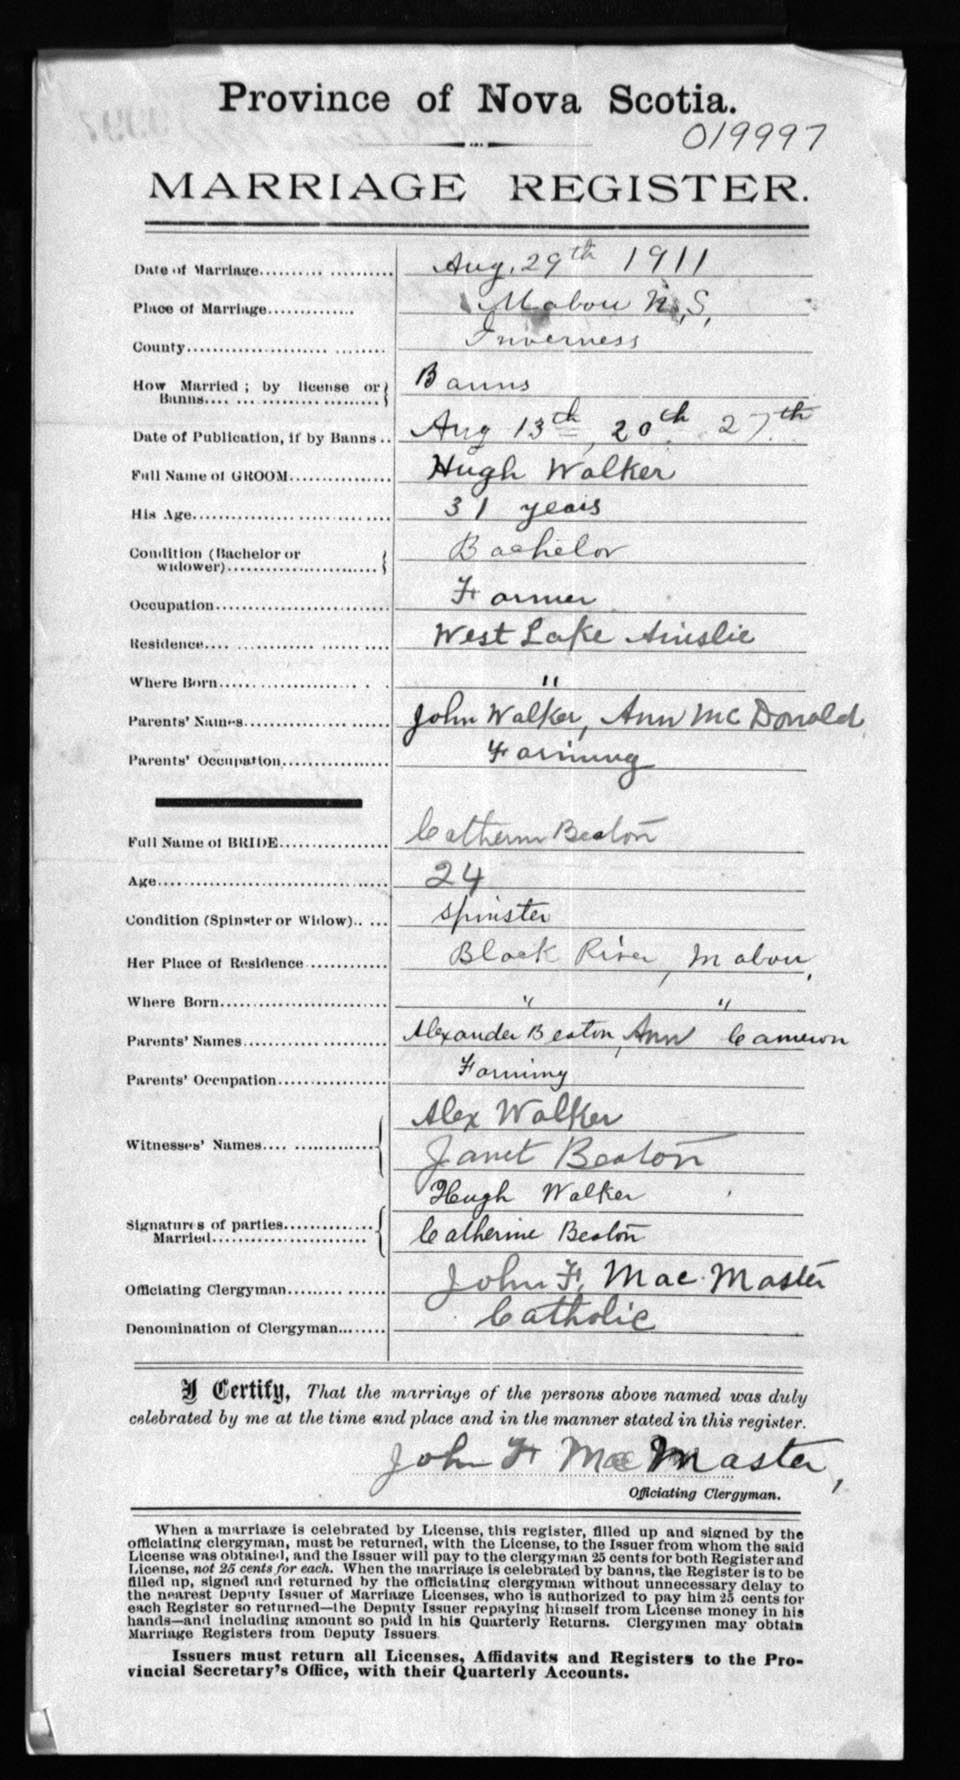 Province of Nova Scotia.
019997
MARRIAGE REGISTER.
Date of Marriage.................... Aug. 29th 1911
Place of Marriage............. Mabou N.S,
County.............................. Inverness
How Married; by license or Banns.................. Banns
Date of Publication, if by Banns.. Aug 13th, 20th 27th
Full Name of GROOM............... Hugh Walker
His Age............................. 31 years
Condition (Bachelor or widower)...................... Bachelor
Occupation.......................... Farmer
Residence.......................... West Lake Ainslie
Where Born..................... "
Parents' Names..................... John Walker, Ann McDonald
Parents' Occupation................ Farming
Full Name of BRIDE................ Catherine Beaton
Age................................. 24
Condition (Spinster or Widow)..... Spinster
Her Place of Residence............ Black River, Mabou,
Where Born......................... " "
Parents' Names..................... Alexander Beaton, Ann Cameron
Parents' Occupation................ Farming
Witnesses' Names.................. Alex Walker
Janet Beaton
Hugh Walker
Signatures of parties Married...................... Catherine Beaton
Officiating Clergyman............... John F. MacMaster
Denomination of Clergyman.......... Catholic
I Certify, That the marriage of the persons above named was duly
celebrated by me at the time and place and in the manner stated in this register.
John F MacMaster,
Officiating Clergyman.
When a marriage is celebrated by License, this register, filled up and signed by the
officiating clergyman, must be returned, with the License, to the Issuer from whom the said
License was obtained, and the Issuer will pay to the clergyman 25 cents for both Register and
License, not 25 cents for each. When the marriage is celebrated by banns, the Register is to be
filled up, signed and returned by the officiating clergyman without unnecessary delay to
the nearest Deputy Issuer of Marriage Licenses, who is authorized to pay him 25 cents for
each Register so returned—the Deputy Issuer repaying himself from License money in his
hands—and including amount so paid in his Quarterly Returns. Clergymen may obtain
Marriage Registers from Deputy Issuers
Issuers must return all Licenses, Affidavits and Registers to the Pro-
vincial Secretary's Office, with their Quarterly Accounts.